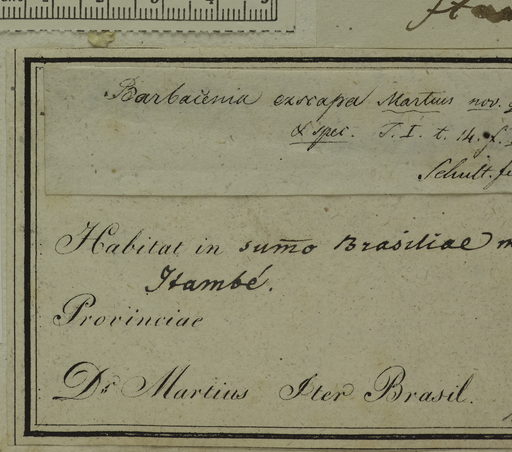 Barbacenia exscapa Martius nov. g
& spec. T. I. t. 14. f.
Schult. fi
Habitat in sum̅o Brasiliae m
Itambé.
Provinciae
Dr Martius Iter Brasil.